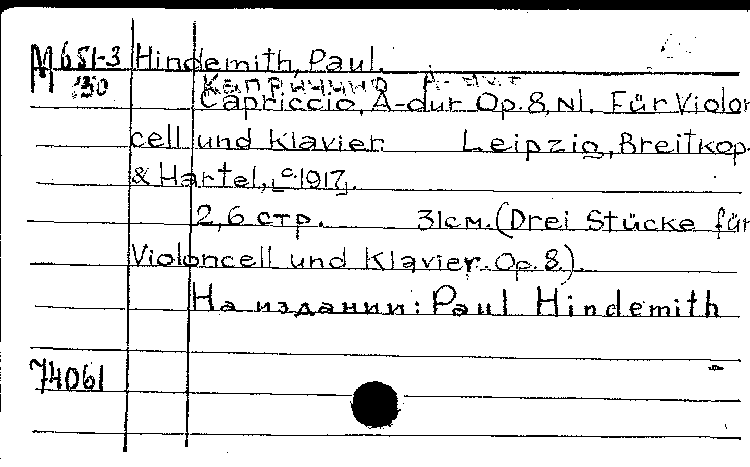 М651-3 Hindemith, Paul.
130 Каприччио A-dur
Capriccio, A-dur Op.8, N1. Für Violon
cell und Klavier. Leipzig, Breitkop.
& Hartel, [c 1917].
2,6 стр. 31см. (Drei Stücke für
Violoncell und Klavier. Op. 8.).
На издании: Paul Hindemith
74061